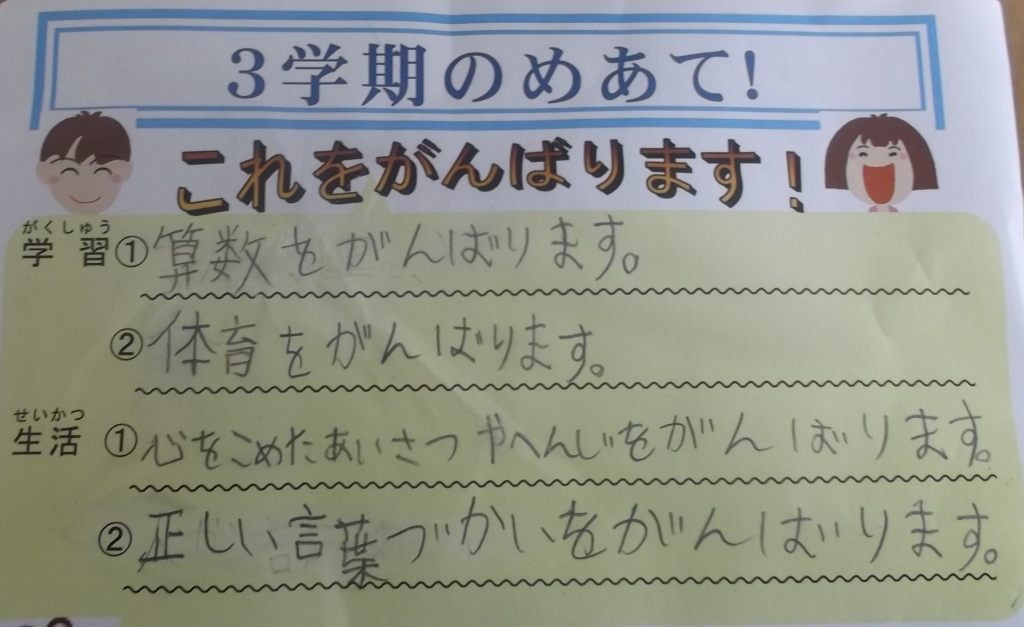 3学期のめあて!
これをがんばります!
がくしゅう
学習①算数をがんばります。
②体育をがんばります。
せいかつ
生活①心をこめたあいさつやへんじをがんばります。
②正しい言葉づかいをがんばります。